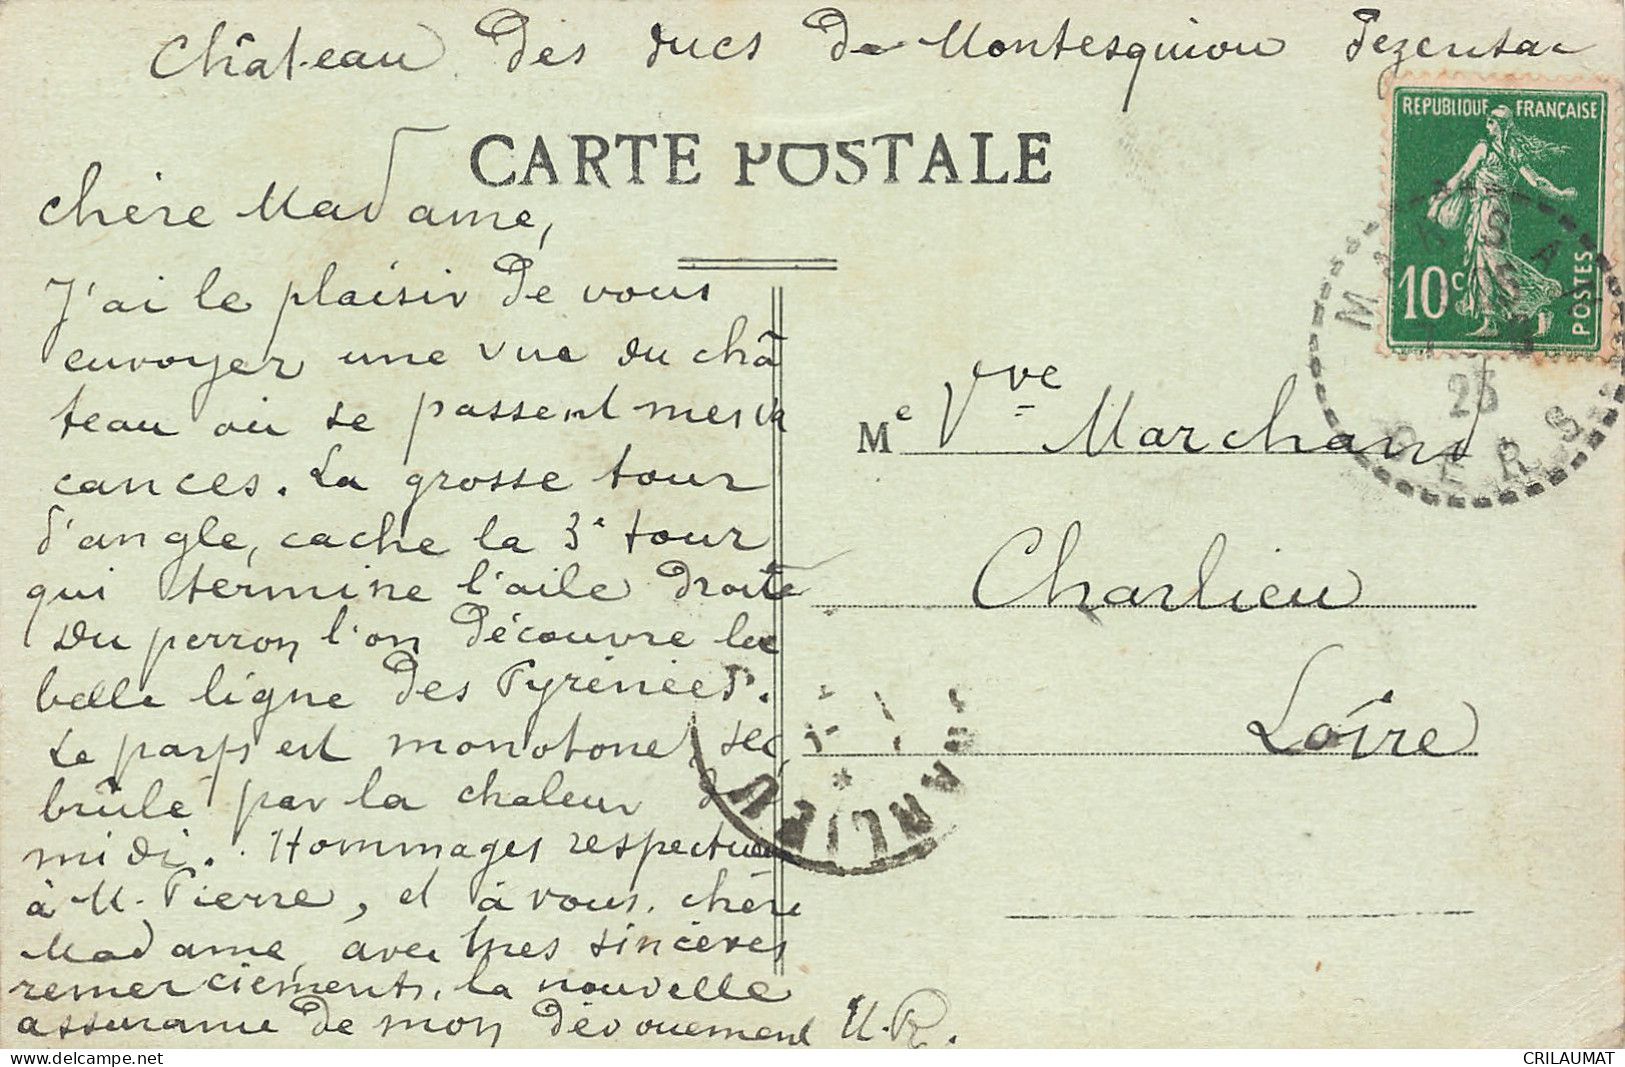 Château des ducs de Montesquiou Fezensac
CARTE POSTALE
REPUBLIQUE FRANÇAISE
10c
POSTES
MARSAN
23
GERS
Chère Madame,
J'ai le plaisir de vous
envoyer une vue du châ
teau où se passent mes va
cances. La grosse tour
d'angle, cache la 3e tour
qui termine l'aile droite
Du perron l'on découvre la
belle ligne des Pyrénées.
Le parc est monotone, sec,
brûlé par la chaleur du
midi. Hommages respectueux
à M. Pierre, et à vous, chère
Madame, avec mes sincères
remerciements, la nouvelle
assurance de mon dévouement M.R.
Me Vve Marchand
Charlieu
Loire
CHARLIEU
CRILAUMAT